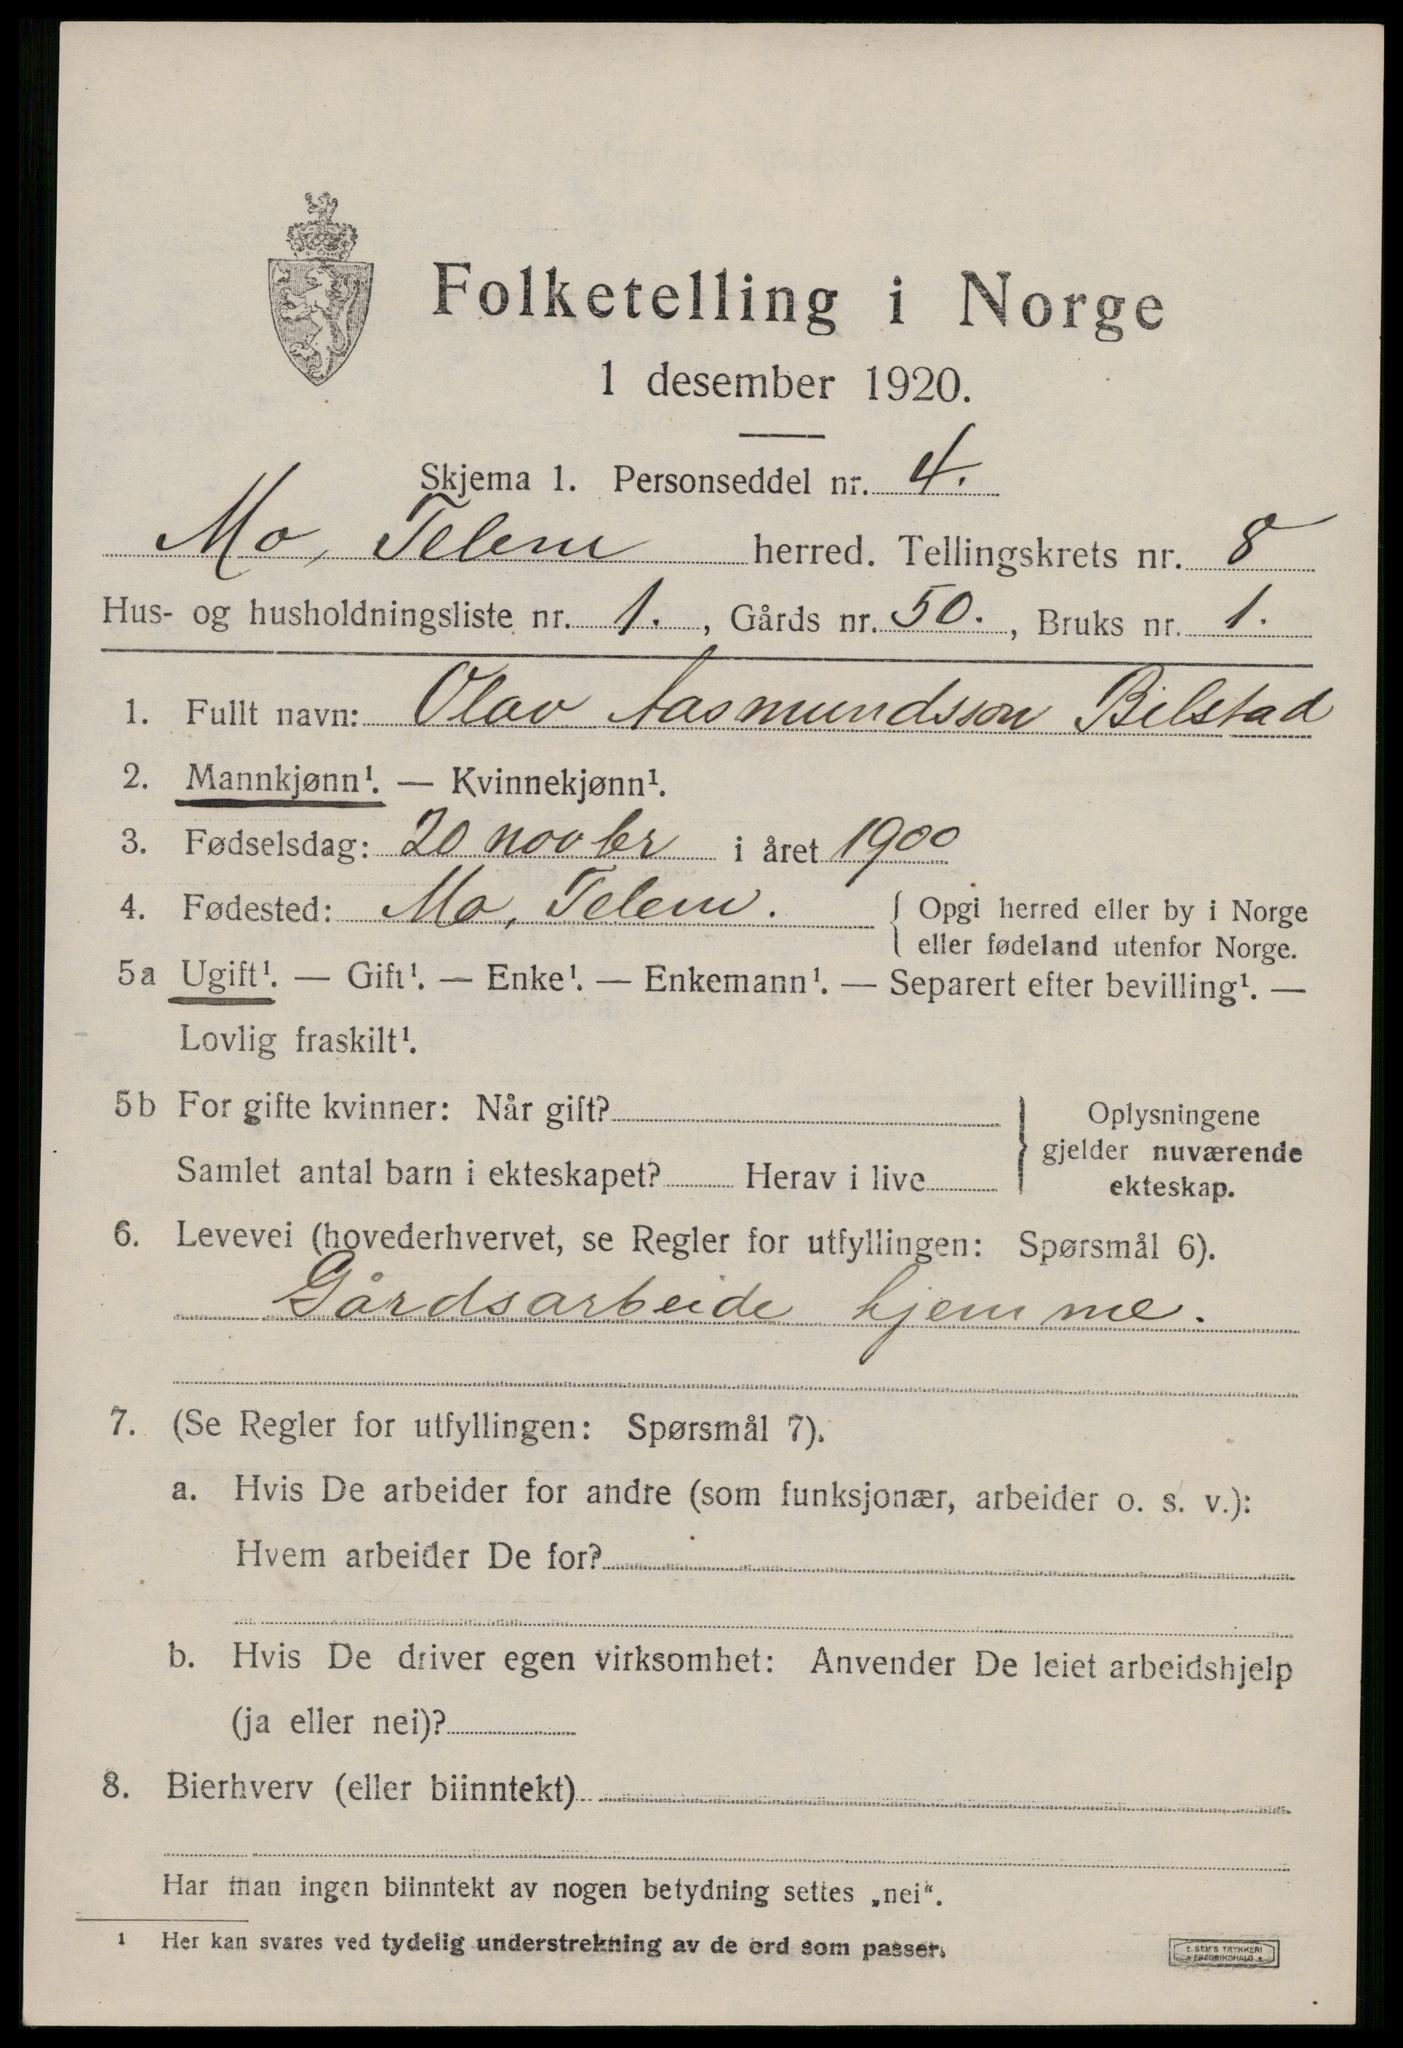 Folketelling i Norge
1 desember 1920.
Skjema 1. Personseddel nr. 4.
Mo, Telem herred. Tellingskrets nr. 8
Hus- og husholdningsliste nr. 1. , Gårds nr. 50. , Bruks nr. 1.
1. Fullt navn: Olav Aasmundsson Bilstad
2. Mannkjønn¹. — Kvinnekjønn¹.
3. Fødselsdag: 20 novbr i året 1900
4. Fødested: Mo, Telem. { Opgi herred eller by i Norge
eller fødeland utenfor Norge.
5a Ugift¹. — Gift¹. — Enke¹. — Enkemann¹. — Separert efter bevilling¹. —
Lovlig fraskilt¹.
5b For gifte kvinner: Når gift?
Samlet antal barn i ekteskapet? Herav i live
} Oplysningene
gjelder nuværende
ekteskap.
6. Levevei (hovederhvervet, se Regler for utfyllingen: Spørsmål 6).
Gårdsarbeide hjemme.
7. (Se Regler for utfyllingen: Spørsmål 7).
a. Hvis De arbeider for andre (som funksjonær, arbeider o. s. v.):
Hvem arbeider De for?
b. Hvis De driver egen virksomhet: Anvender De leiet arbeidshjelp
(ja eller nei)?
8. Bierhverv (eller biinntekt)
Har man ingen biinntekt av nogen betydning settes „nei“.
1 Her kan svares ved tydelig understrekning av de ord som passer.
E. SEM'S TRYKKERI
FREDRIKSHALD